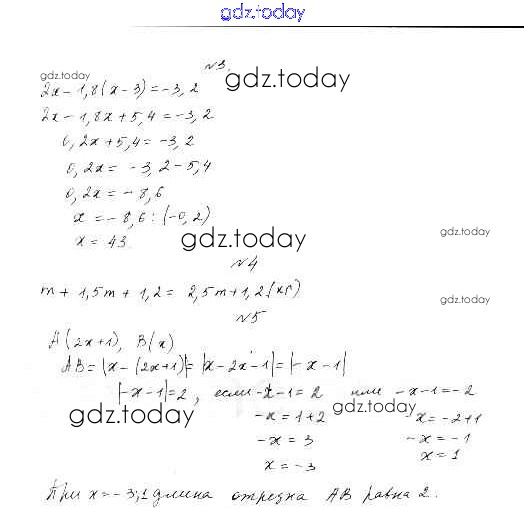 gdz.today
№3.
gdz.today
gdz.today
2x - 1,8(x-3) = -3,2
2x - 1,8x + 5,4 = -3,2
0,2x + 5,4 = -3,2
0,2x = -3,2 - 5,4
0,2x = -8,6
x = -8,6 : (-0,2)
x = 43.
gdz.today
gdz.today
№4
m + 1,5m + 1,2 = 2,5m + 1,2 (кг)
gdz.today
№5
A(2x+1), B(x)
AB = |x - (2x+1)| = |x - 2x - 1| = |-x - 1|
|-x - 1| = 2, если -x - 1 = 2 или -x - 1 = -2
gdz.today
gdz.today
-x = 1 + 2 x = -2 + 1
-x = 3 -x = -1
x = -3 x = 1
При x = -3; 1 длина отрезка AB равна 2.